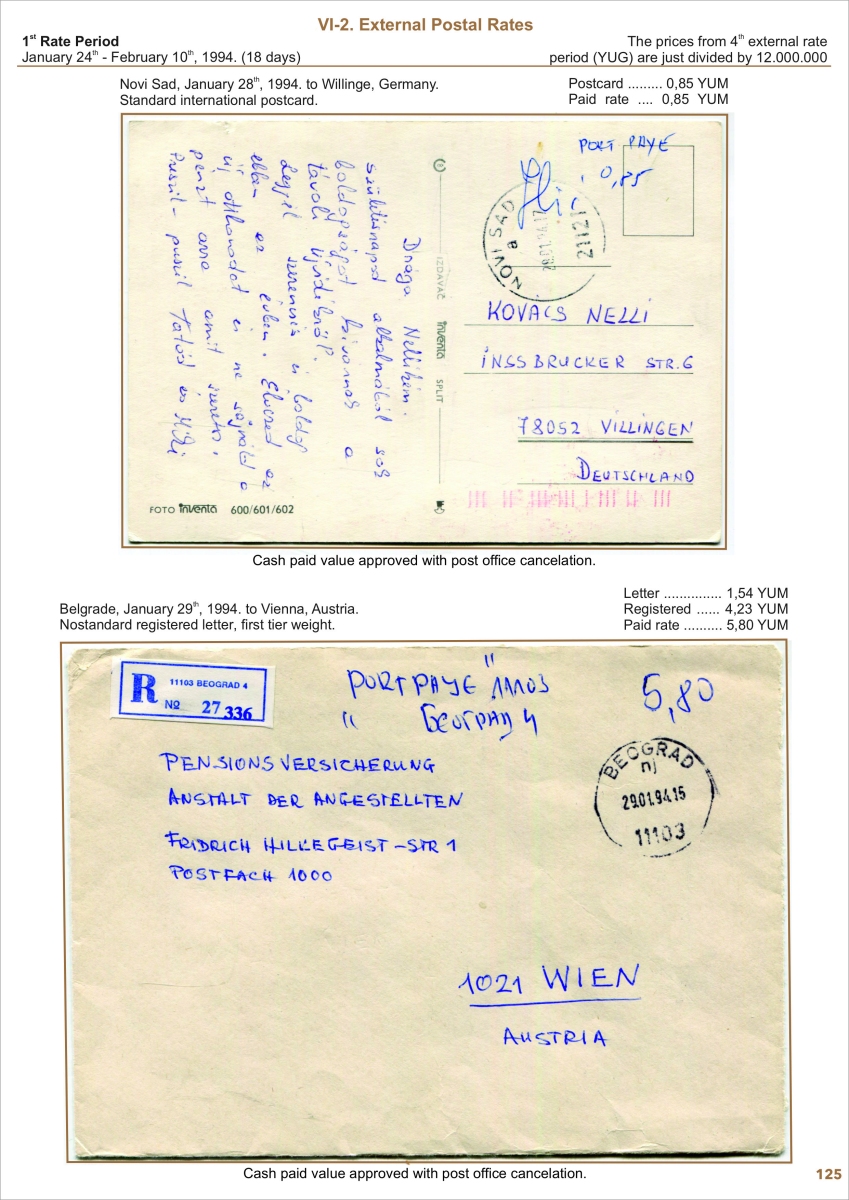 VI-2. External Postal Rates
1st Rate Period
January 24th - February 10th, 1994. (18 days)
The prices from 4th external rate
period (YUG) are just divided by 12.000.000
Novi Sad, January 28th, 1994. to Willinge, Germany.
Standard international postcard.
Postcard ......... 0,85 YUM
Paid rate .... 0,85 YUM
PORT PAYE
0,85
NOVI SAD
a
28.01.94.17
21121
Drága Nellikém.
születésnapod alkalmából sok
boldogságot kivánnak a
távoli Ujvidékről.
Legyél szerencsés és boldog
ebben az évben. Élvezed az
új otthonodat és ne sajnáld a
pénzt arra amit szeretsz.
Puszil - puszil Tatád és
IZDAVAČ inventa SPLIT
KOVACS NELLI
INSSBRUCKER STR. 6
78052 VILLINGEN
DEUTSCHLAND
FOTO inventa 600/601/602
Cash paid value approved with post office cancelation.
Belgrade, January 29th, 1994. to Vienna, Austria.
Nostandard registered letter, first tier weight.
Letter ............... 1,54 YUM
Registered ...... 4,23 YUM
Paid rate .......... 5,80 YUM
R 11103 BEOGRAD 4
№ 27 336
PORT PAYE 11103
БЕОГРАД 4
5,80
BEOGRAD
nj
29.01.94.15
11103
PENSIONSVERSICHERUNG
ANSTALT DER ANGESTELLTEN
FRIDRICH HILLEGEIST-STR 1
POSTFACH 1000
1021 WIEN
AUSTRIA
Cash paid value approved with post office cancelation.
125